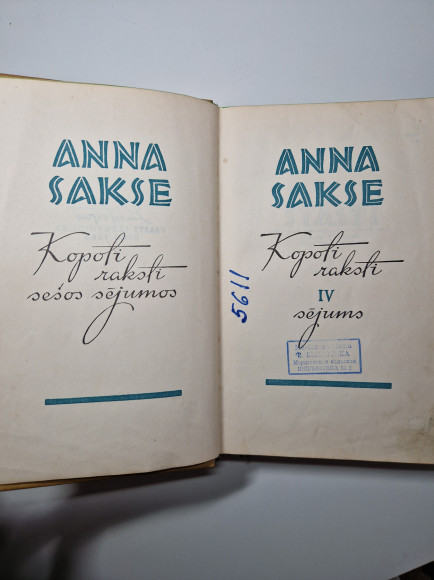 ANNA
SAKSE
Kopoti
raksti
sešos sējumos
5611
ANNA
SAKSE
Kopoti
raksti
IV
sējums